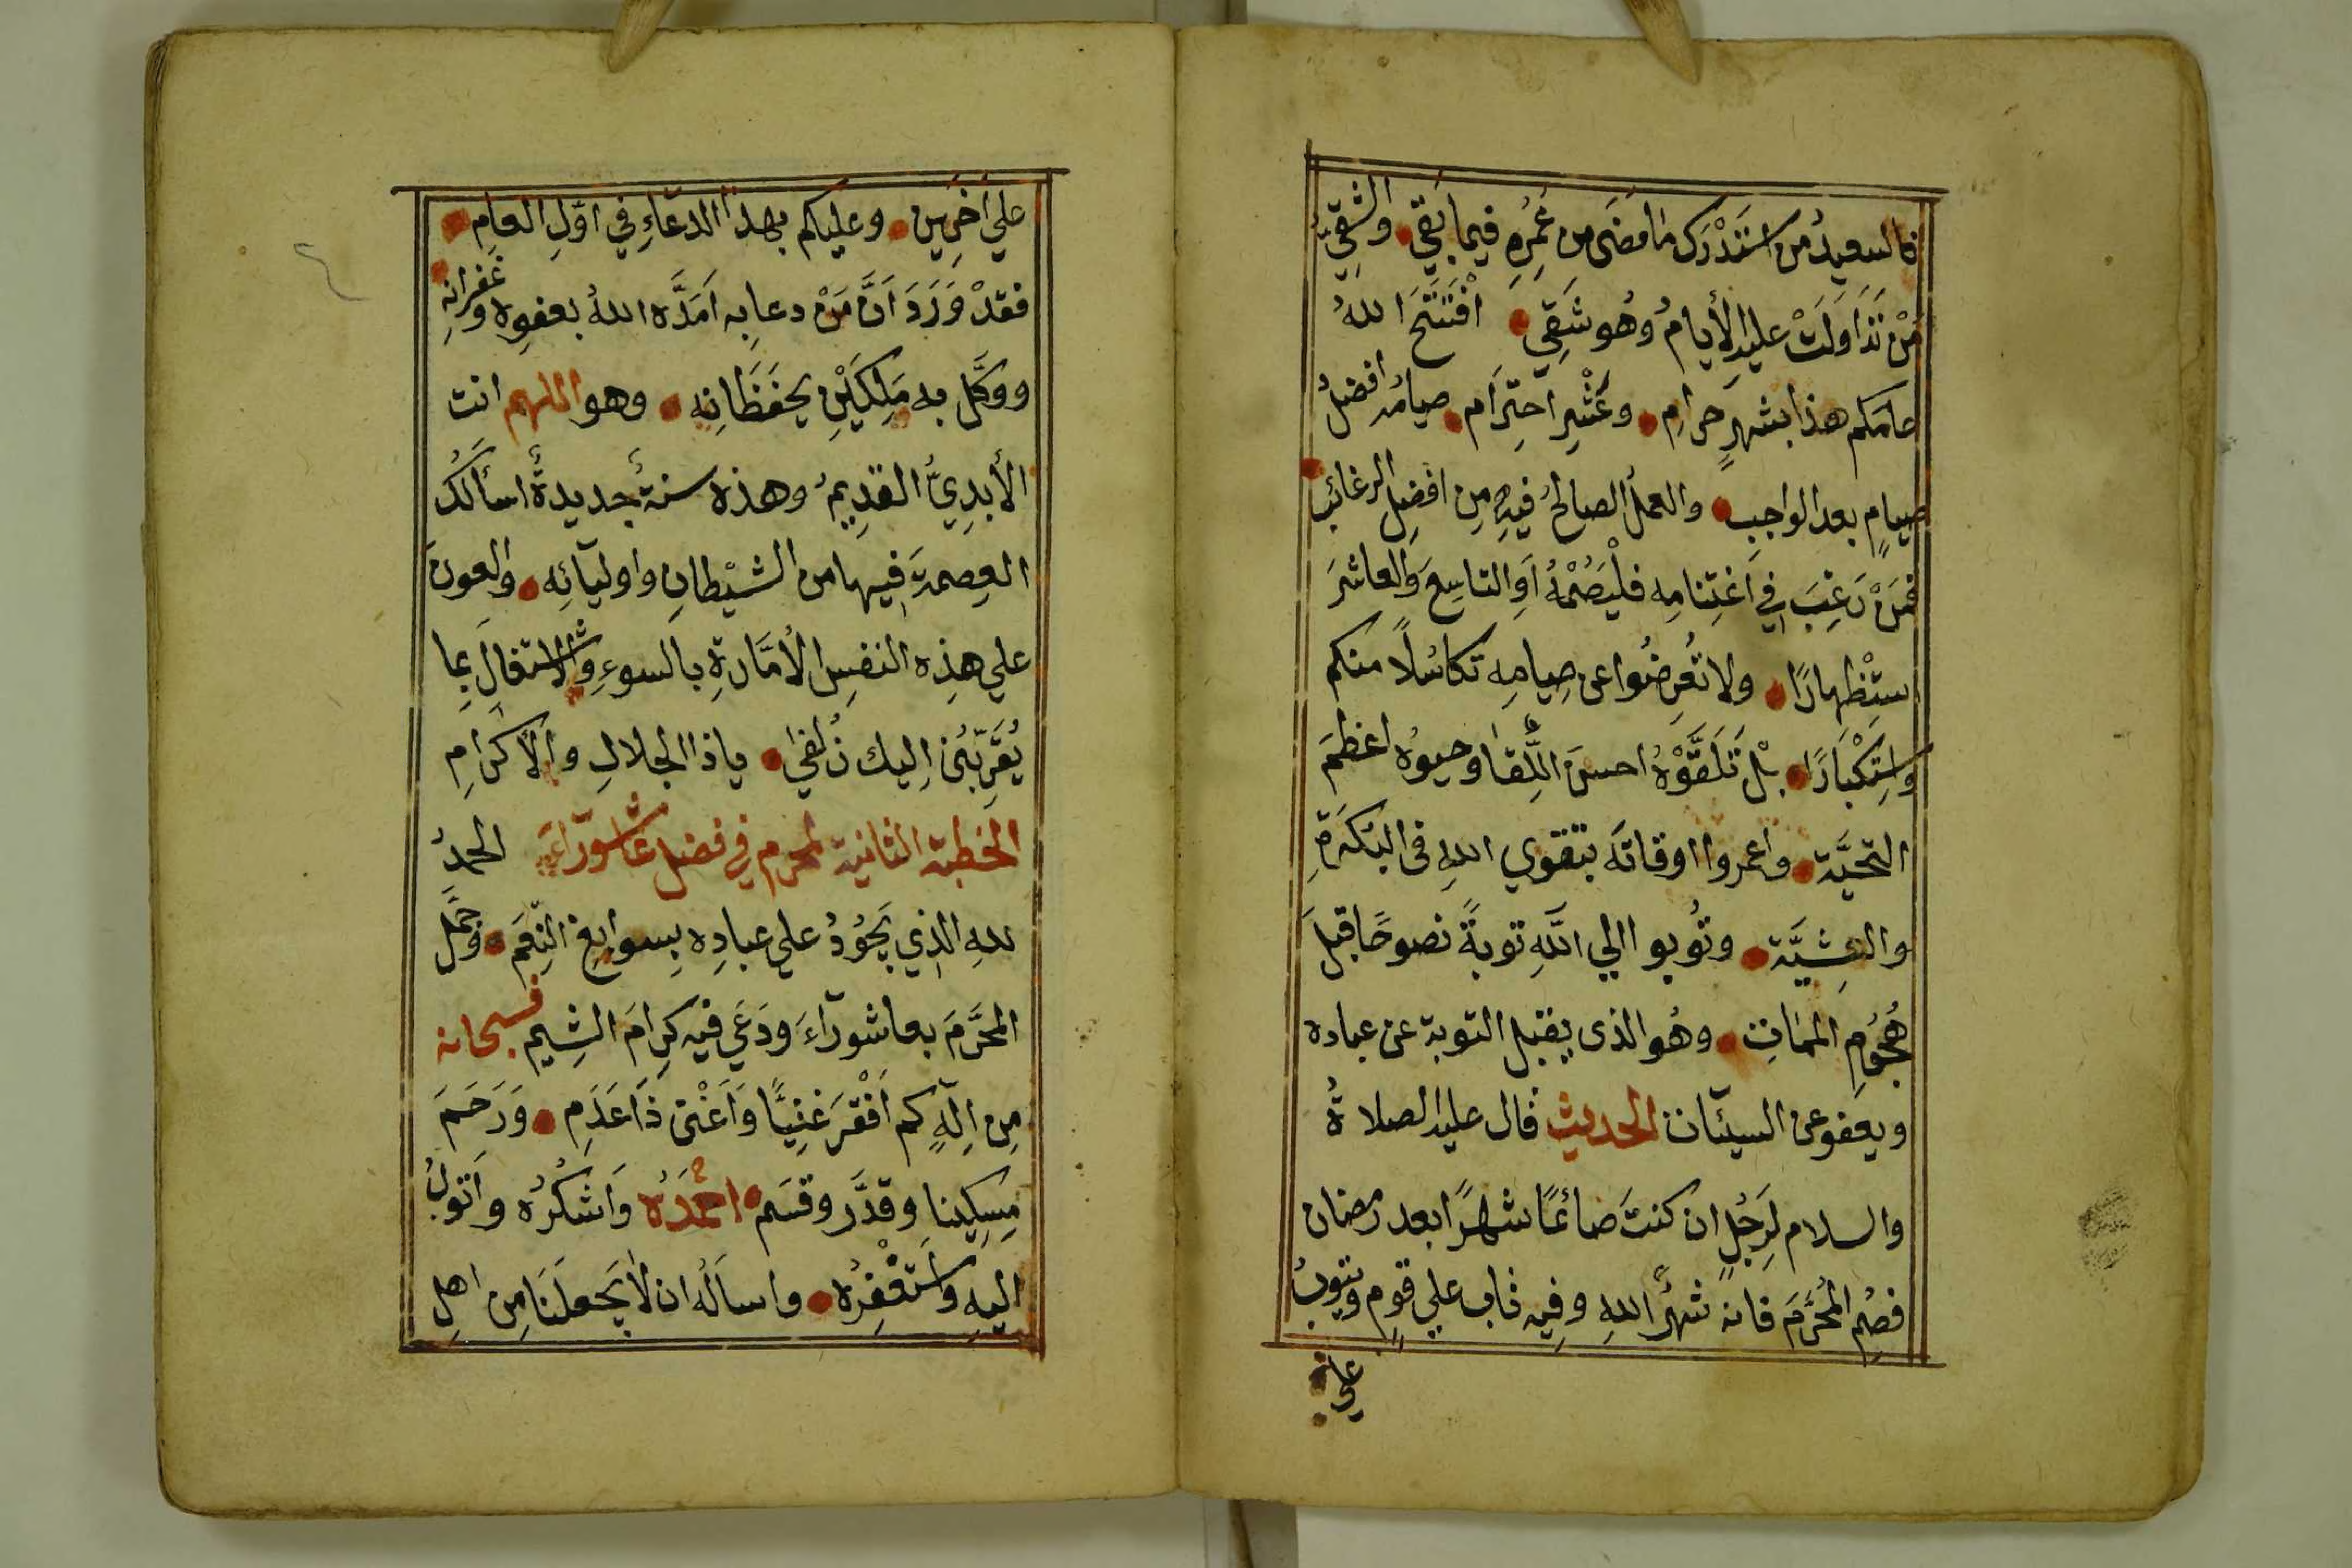 فالسعيدُ من استَدْرَكَ ما مَضَى من عُمرِهِ فيما بَقِيَ والشقِيُّ
مَنْ تَدَاوَلَتْ عليهِ الأيامُ وهُو شَقِي افْتَتَحَ اللهُ
عامَكم هذا بشهرٍ حرامٍ وعَشْرِ احتِرَام صيامُه افضلُ
صيامٍ بعد الواجِبِ والعملُ الصالحُ فيهِ مِن افضِل الرغائبِ
فمَنْ رَغِبَ في اغتِنامِه فلْيَصُمْهُ اَوِ التاسِعَ والعاشرَ
ستِظْهارًا ولا تُعرِضُوا عن صِيامِه تكاسُلًا منكم
واستِكْبَارًا بلْ تَلَقَّوْهُ احسنَ اللِّقَا وحيوُه اعظمَ
التحيَّة واعمروا اوقاتَه بتقوي اللهِ فى البُكَرَةِ
والعشِيَّة وتُوبوا الي اللَّهِ توبةً نصوحًا قبلَ
هُجُومِ المماتِ وهُو الذى يقبل التوبة عن عباده
ويعفو عن السيئات الحديث قال عليه الصلاةُ
والسلام لِرَجُلٍ ان كنتَ صائمًا شهرًا بعد رمضان
فصُمِ المُحَرَّمَ فانه شهرُ اللهِ وفيِه تاب علي قومٍ ويتوبُ
علي
علي اخَرِين وعليكم بهذا الدعاءِ في اوّلِ العامِ
فقدْ وَرَدَ اَنَّ مَنْ دعا بِه اَمَدَّه اللهُ بعفوِه وغفرانهِ
ووكَّل به مَلِكَيْنِ يحفَظَانِه وهو اللهم انت
الأبدِيُّ القدِيمُ وهذه سنةٌ جديدةٌ اسألكَ
العِصمةَ فيها من الشيْطانِ واوليآئِه والعونَ
علي هذِه النفسِ الأمَّارةِ بالسوءِ والاشتغالَ بِما
يُقرِّبُنى اِليك زُلفي ياذا الجلالِ والأكرامِ
الخطبة الثانية لمحرم في فضل عاشورآءَ الحمدُ
للهِ الذِي يَجُودُ علي عبادِه بِسوابِغِ النِّعَمَ وجمَّل
المحرَّمَ بعاشورآءَ ودَعَي فيه كِرامَ الشِيمِ فسبحانه
مِن اِلهٍ كم اَفْقرَ غنِيًّا وَاَغْنى ذَا عَدَمِ وَرَحَمَ
مِسكِينا وقدَّر وقسَم احمَدُه وَاَشكُرُه واَتوبُ
اليهِ واَستَغْفِرُه واسألُه ان لا يَجعلَنَا مِن اهلِ